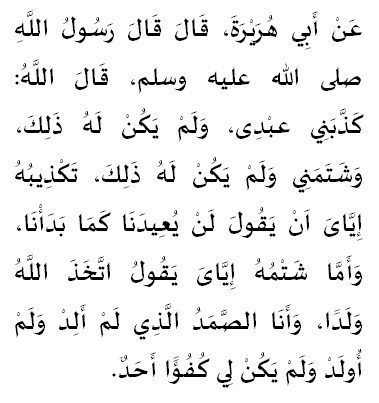 عَنْ أَبِي هُرَيْرَةَ، قَالَ قَالَ رَسُولُ اللَّهِ
صلى الله عليه وسلم، قَالَ اللَّهُ:
كَذَّبَنِي عبْدِى، وَلَمْ يَكُنْ لَهُ ذَلِكَ،
وَشَتَمَنِي وَلَمْ يَكُنْ لَهُ ذَلِكَ، تَكْذِيبُهُ
إِيَّاىَ اَنْ يَقُولَ لَنْ يُعِيدَنَا كَمَا بَدَأْنَا،
وَأَمَّا شَتْمُهُ إِيَّاىَ يَقُولُ اتَّخَذَ اللَّهُ
وَلَدًا، وَأَنَا الصَّمَدُ الَّذِي لَمْ أَلِدْ وَلَمْ
أُولَدْ وَلَمْ يَكُنْ لِي كُفُؤًا أَحَدٌ.